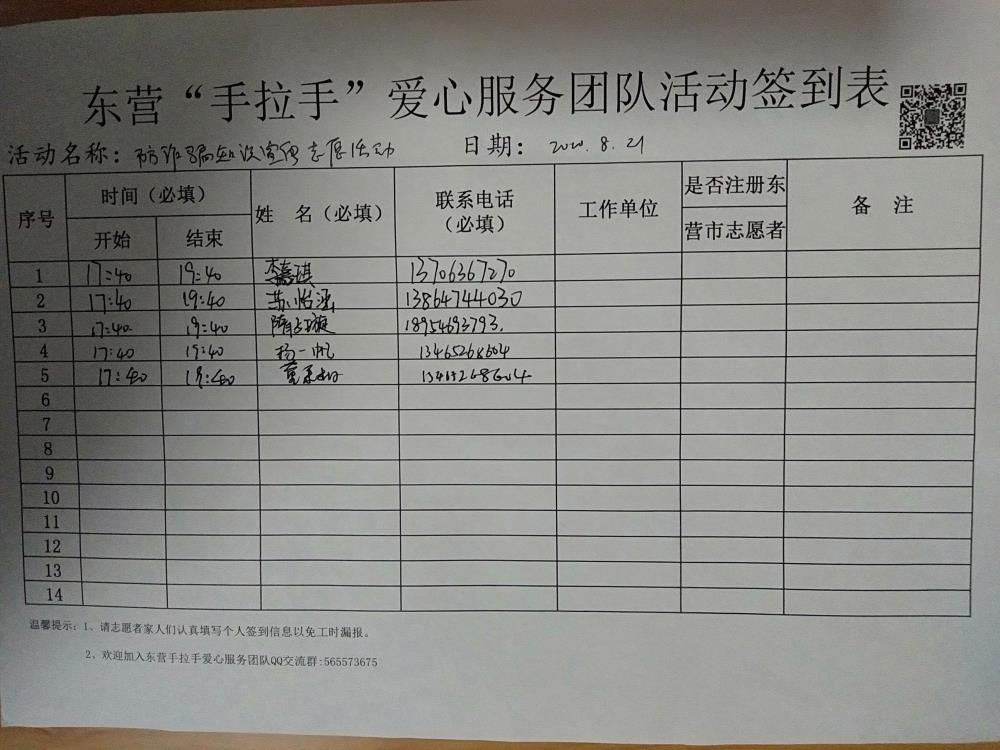 东营“手拉手”爱心服务团队活动签到表
活动名称：防诈骗知识宣传志愿活动 日期：2020.8.21
序号 时间（必填） 姓 名（必填） 联系电话（必填） 工作单位 是否注册东营市志愿者 备 注
开始 结束
1 17:40 19:40 李嘉琪 13706367270
2 17:40 19:40 苏怡涵 13864744030
3 17:40 19:40 隋 璇 18954693793.
4 17:40 19:40 杨一帆 13465268604
5 17:40 19:40 董
6
7
8
9
10
11
12
13
14
温馨提示：1、请志愿者家人们认真填写个人签到信息以免工时漏报。
2、欢迎加入东营手拉手爱心服务团队QQ交流群:565573675